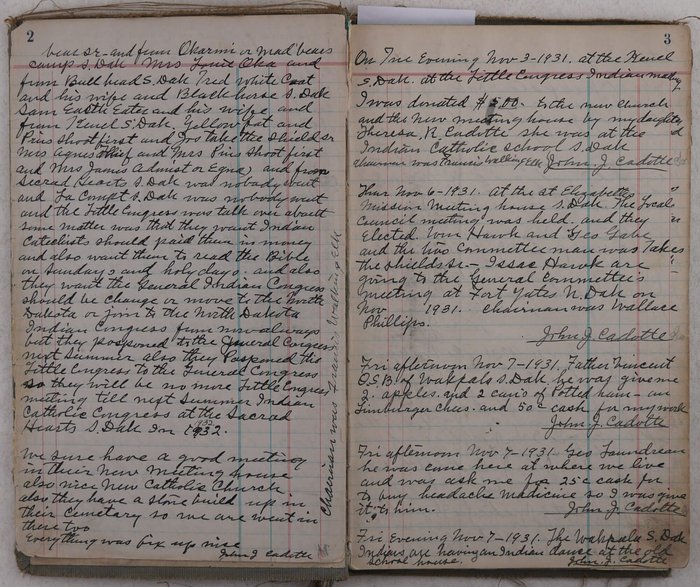 2
bear sr - and from Okarmi or mad bears
camp S. Dak Mrs Louie Oka and
from Bull head S. Dak Fred White Coat
and his wife and Black horse S. Dak
Sam Eastle Eater and his wife and
from Kenel S. Dak Yellow fat and
Pius Shoot first and Joe take the shield sr
Mrs Agnes Chief and Mrs Pius Shoot first
and Mrs James and from
Sacred Hearts S. Dak was nobody went
and La Compt S. Dak was nobody went
and the Little Congress was talk over about
some matter was that they want Indian
Catechists should paid them in money
and also want them to read the Bible
on Sundays and holy days and also
they want the General Indian Congress
should be change or move to the North
Dakota or join to the North Dakota
Indian Congress from now always
but they posponed to the General Congress
next Summer also they Posponed the
Little Congress to the General Congress
so they will be no more Little Congress
meeting till next Summer Indian
Catholic Congress at the Sacred
Hearts S. Dak Im 1932
1932.
We sure have a good meeting
in their New Meeting house
also nice New Catholic Church
also they have a stone build up in
their Cemetary so we are went in
there too
Everything was fix up nise
John J Cadotte
Chairman was Francis Walking Elk
3
On Tue Evening Nov 3 - 1931. at the Kenel
S. Dak. at the Little Congress Indian meeting
I was donated $ .00. to the new church
and the New meeting house by my daughter
Theresa, R. Cadotte she was at the
Indian Catholic school S. Dak
chairman was Francis Walking Elk John. J. Cadotte
Thur Nov 6 - 1931. at the St Elizabeths
Mission Meeting house S. Dak. The Local
Council meeting was held. and they
Elected Tom Hawk and Geo Gabe
and the two Committee man was Takes
the shields Sr. - Issac Hawk are
going to the General Committee's
Meeting at Fort Yates N. Dak on
Nov 1931. Chairman was Wallace
Phillips.
John. J. Cadotte
Fri afternoon Nov 7 - 1931. Father Vincent
O.S.B. of Wakpala S. Dak. he was give me
2. apples. and 2 can's of Potted ham - an
Limburger Chees. and 50¢ cash for my work
John. J. Cadotte
Fri afternoon Nov 7 - 1931. Geo
he was came here at where we live
and way ask me for 25¢ cash for
to buy headache Medicine so I was give
it to him.
John. J. Cadotte
Fri Evening Nov 7 - 1931. The Wakpala S. Dak
Indians are having an Indian dance at the old
school house.
John. J. Cadotte